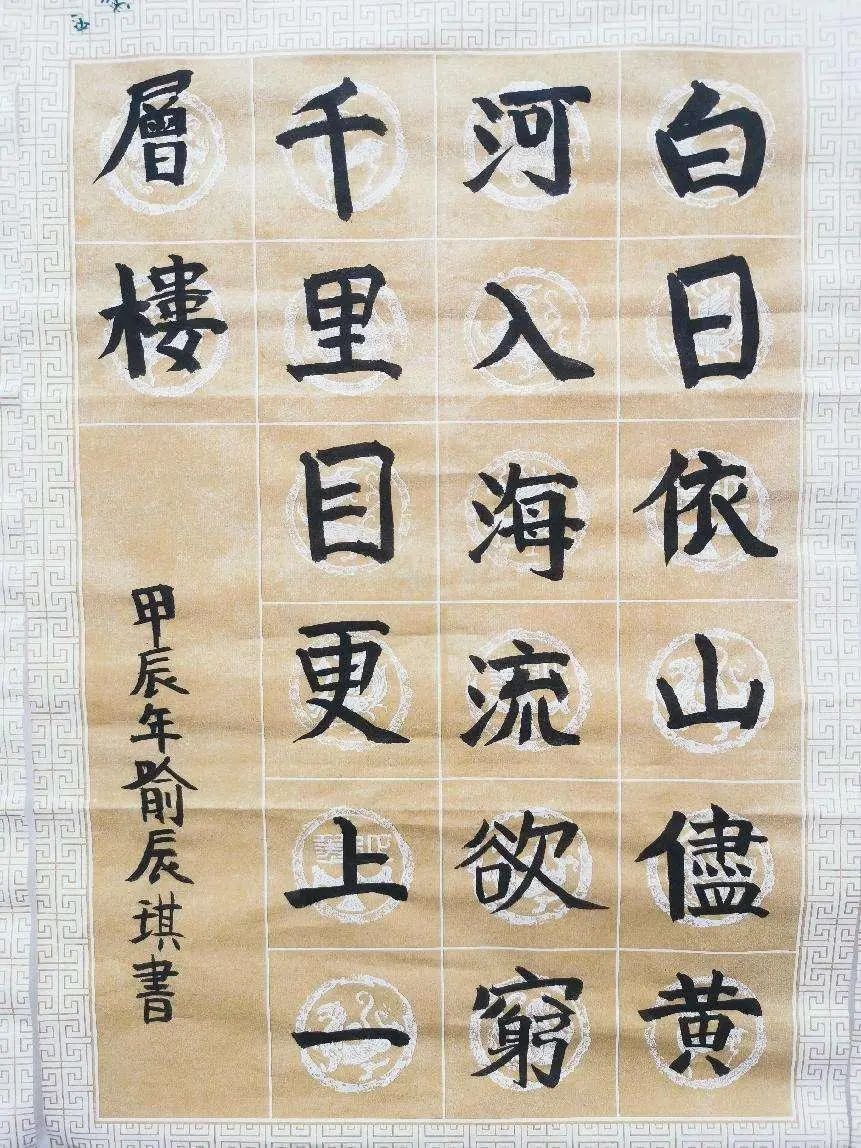 白日依山儘黄
河入海流欲窮
千里目更上一
層樓
甲辰年喻辰琪書